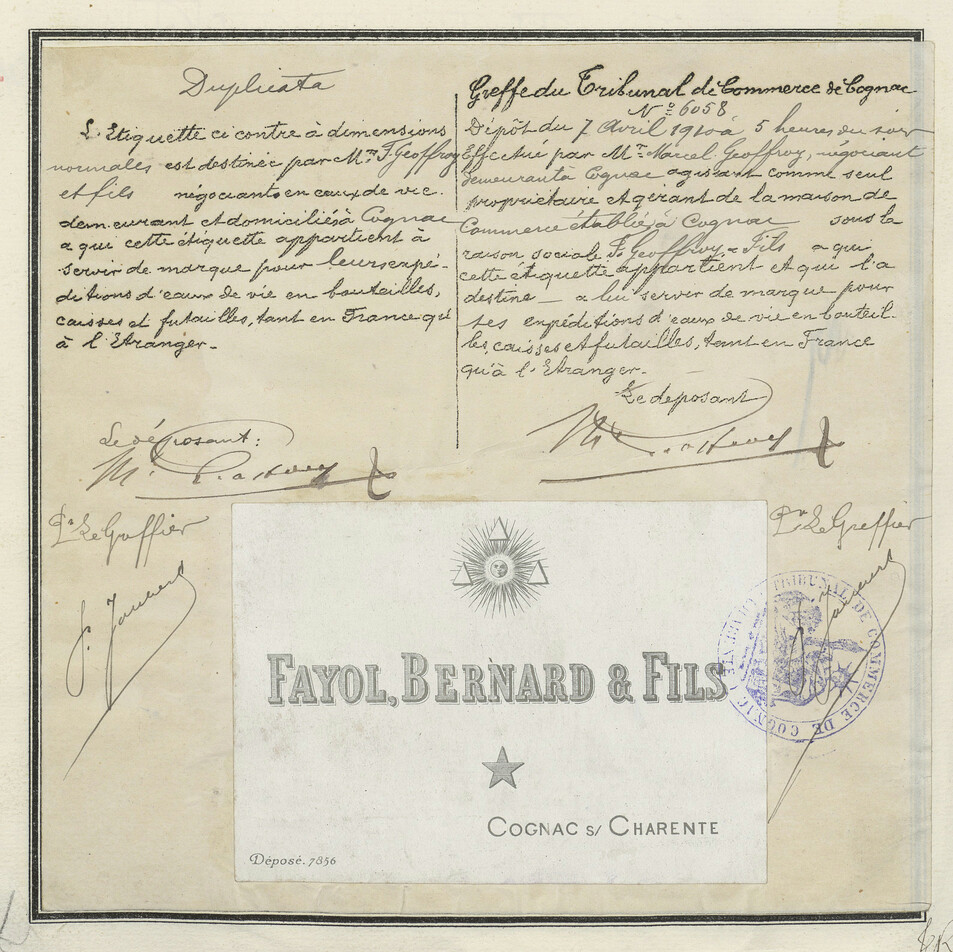 Duplicata
L'Etiquette ci contre à dimensions
normales est destinée par Mr. F. Geoffroy
et fils négociants en eaux de vie
demeurant et domiciliés à Cognac
a qui cette étiquette appartient à
servir de marque pour leurs expé-
ditions d'eaux de vie en bouteilles,
caisses et futailles, tant en France qu'
à l'Etranger.
Le déposant:
Pr. Le Greffier
Greffe du Tribunal de Commerce de Cognac
No 6058
Dépôt du 7 Avril 1910 à 5 heures du soir
Effectué par Mr. Marcel Geoffroy, négociant
demeurant à Cognac agissant comme seul
propriétaire et gérant de la maison de
Commerce établie à Cognac sous la
raison sociale F. Geoffroy & Fils a qui
cette étiquette appartient et qui l'a
destine — a lui servir de marque pour
ses expéditions d'eaux de vie en bouteil-
les, caisses et futailles, tant en France
qu'à l'Etranger.
Le déposant
Pr. Le Greffier
FAYOL, BERNARD & FILS
COGNAC S/ CHARENTE
Déposé. 7356
TRIBUNAL DE COMMERCE DE COGNAC (CHARENTE)